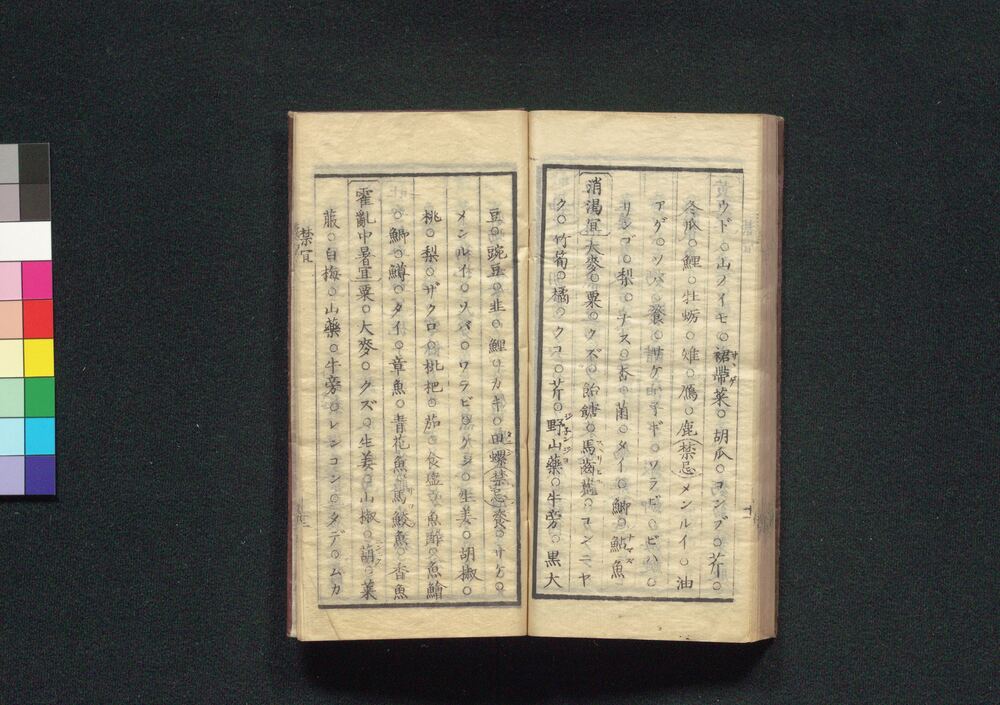 ウド○山ノイモ○裙帶菜○胡瓜○コンブ○芹○
冬瓜○鯉○牡蛎○雉○鴈○鹿(禁忌)メンルイ○油
アゲ○ソバ○餈○サケ○ネギ○ワラビ○ビハ○
リンゴ○梨○ナス○杏○菌○タイ○鯽○鮎魚
消渴宜大麥○粟○クズ○飴餹○馬齒莧○コンニヤ
ク○竹筍○橘○クコ○芹○野山藥○牛旁○黒大
豆○豌豆○韭○鯉○カキ○田螺(禁忌)餈○サケ○
メンルイ○ソバ○ワラビ○ケシ○生姜○胡椒○
桃○梨○ザクロ○枇杷○茄○食塩○魚鮓○魚鱠
○鯽○鱒○タイ○章魚○青花魚○馬鮫魚○香魚
霍亂中暑宜粟○大麥○クズ○生姜○山椒○葫○菜
菔○白梅○山藥○牛旁○レンコン○タデ○ムカ
禁宜